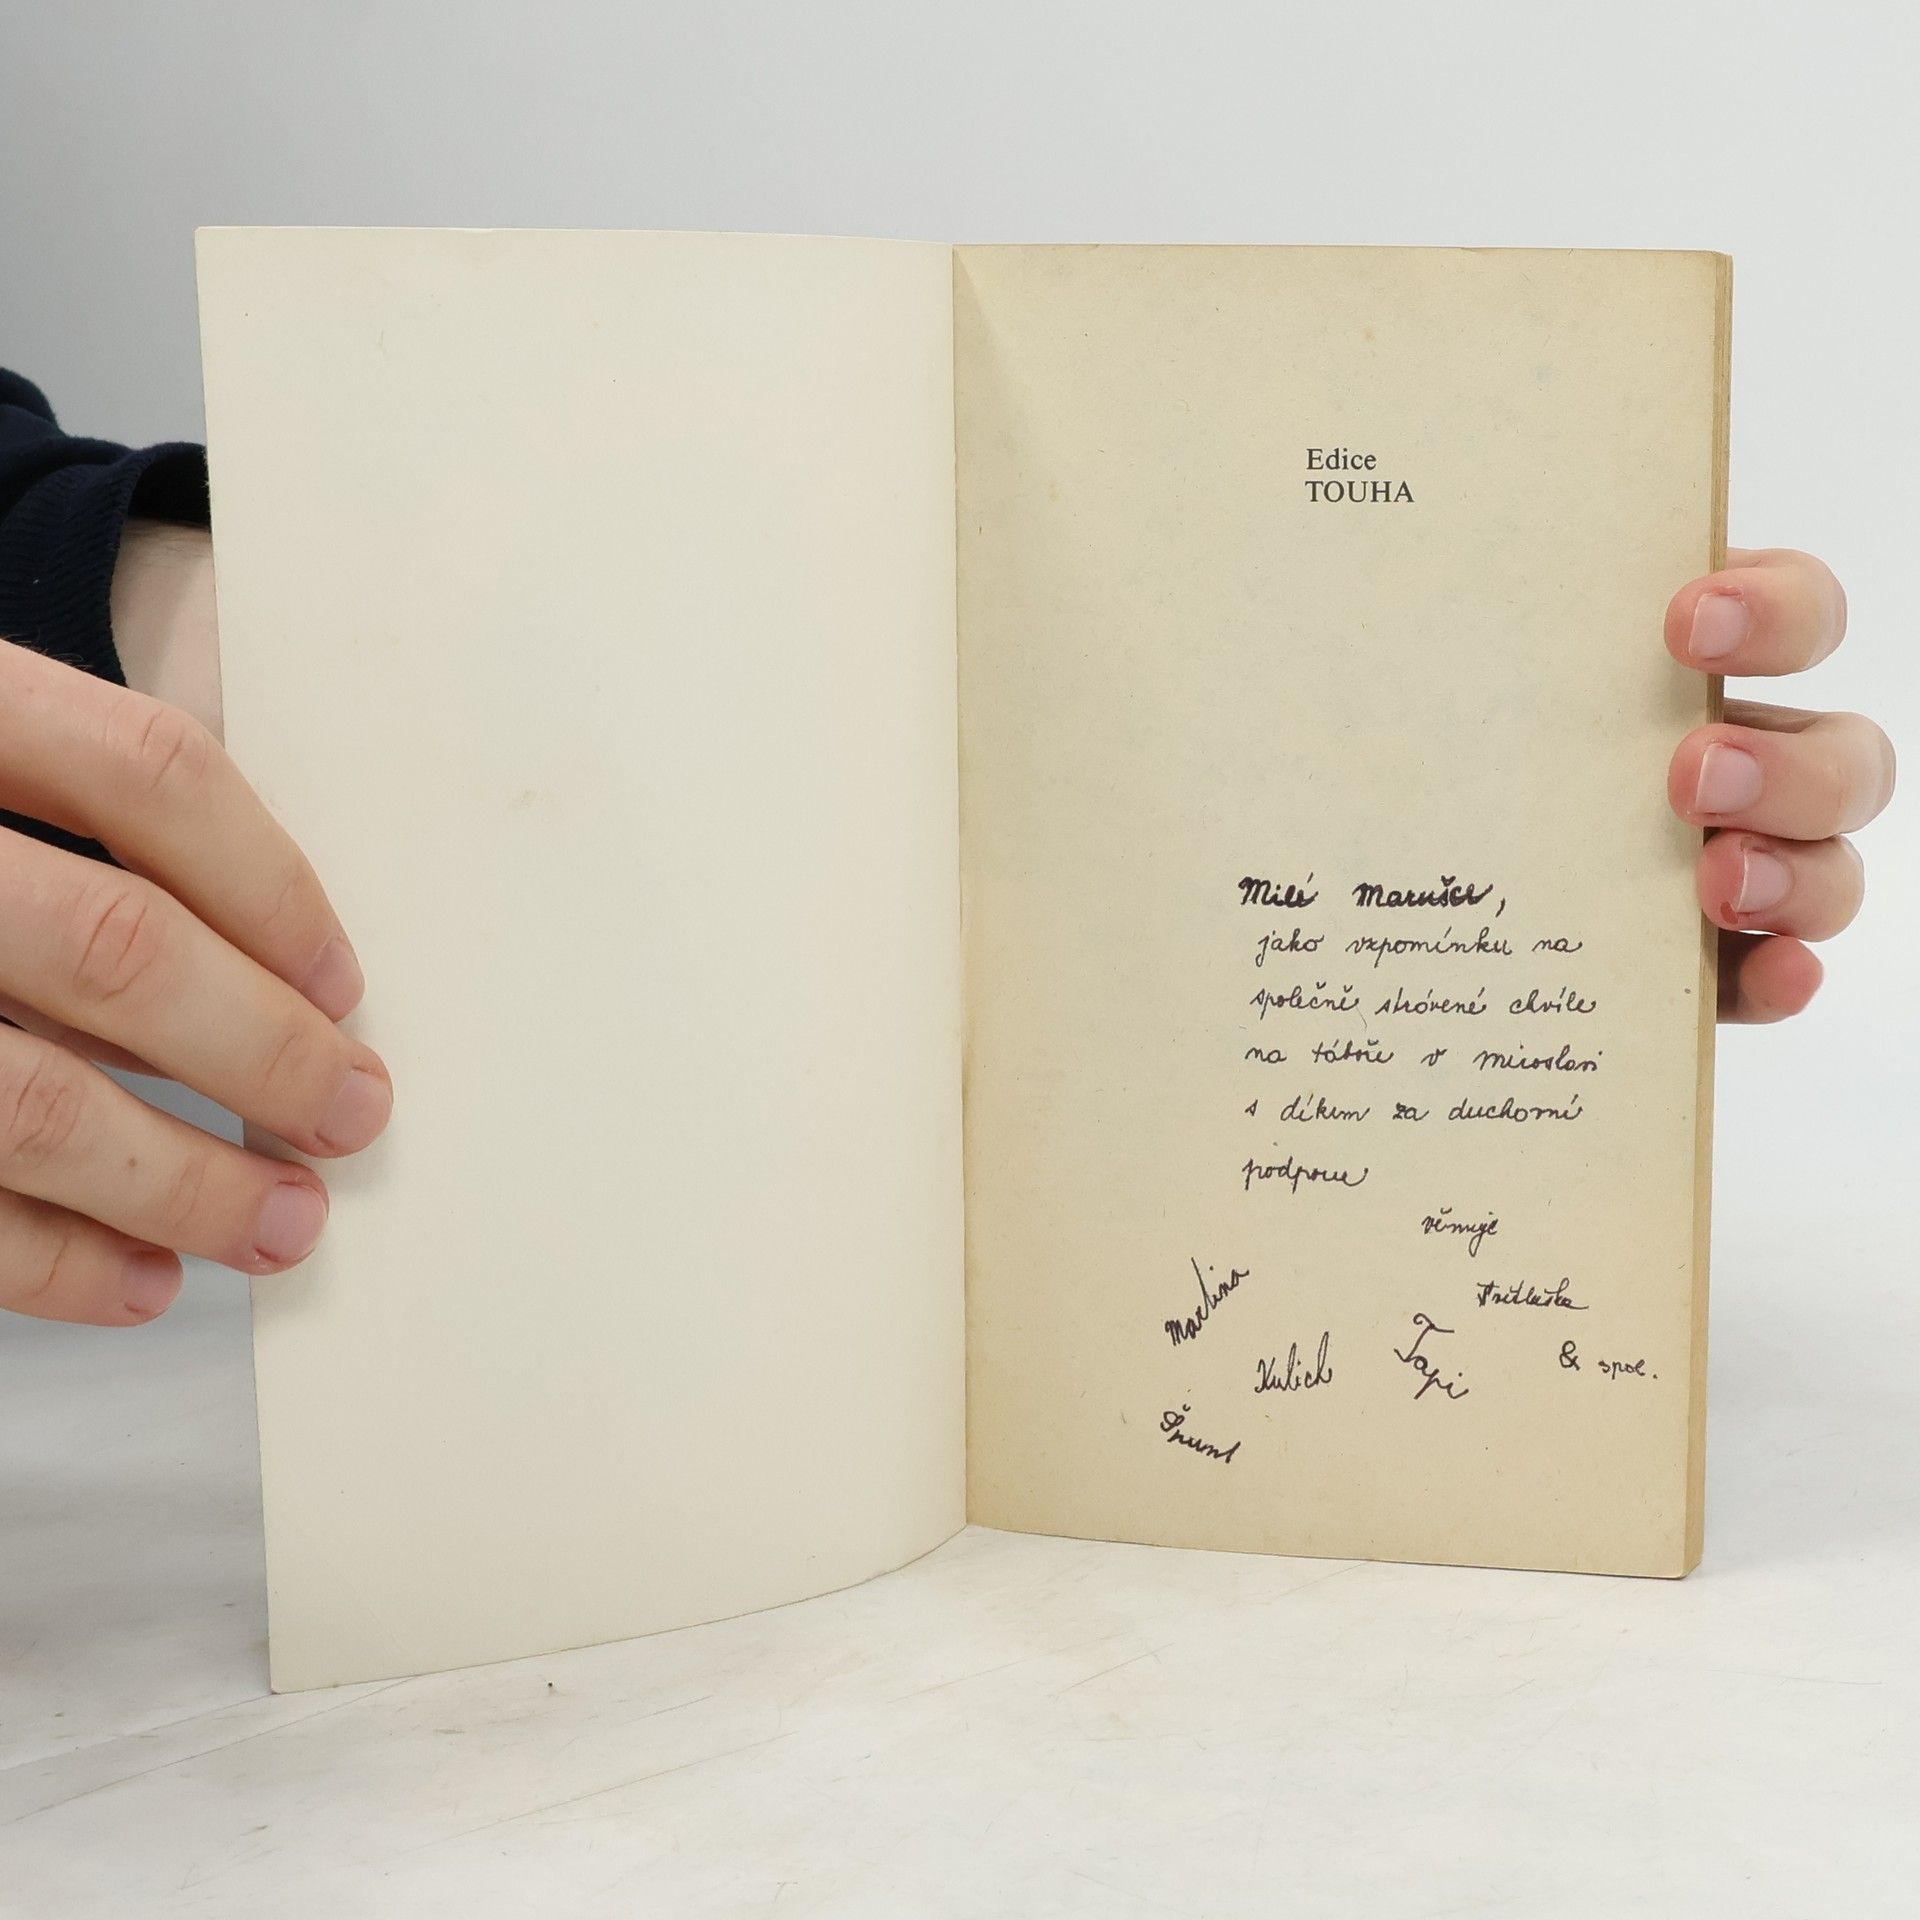 Edice
TOUHA
Milé Marušce,
jako vzpomínku na
společně strávené chvíle
na táboře v Miroslavi
s díkem za duchovní
podporu
věnuje
Martina
Kulich
Ťapi
& spol.